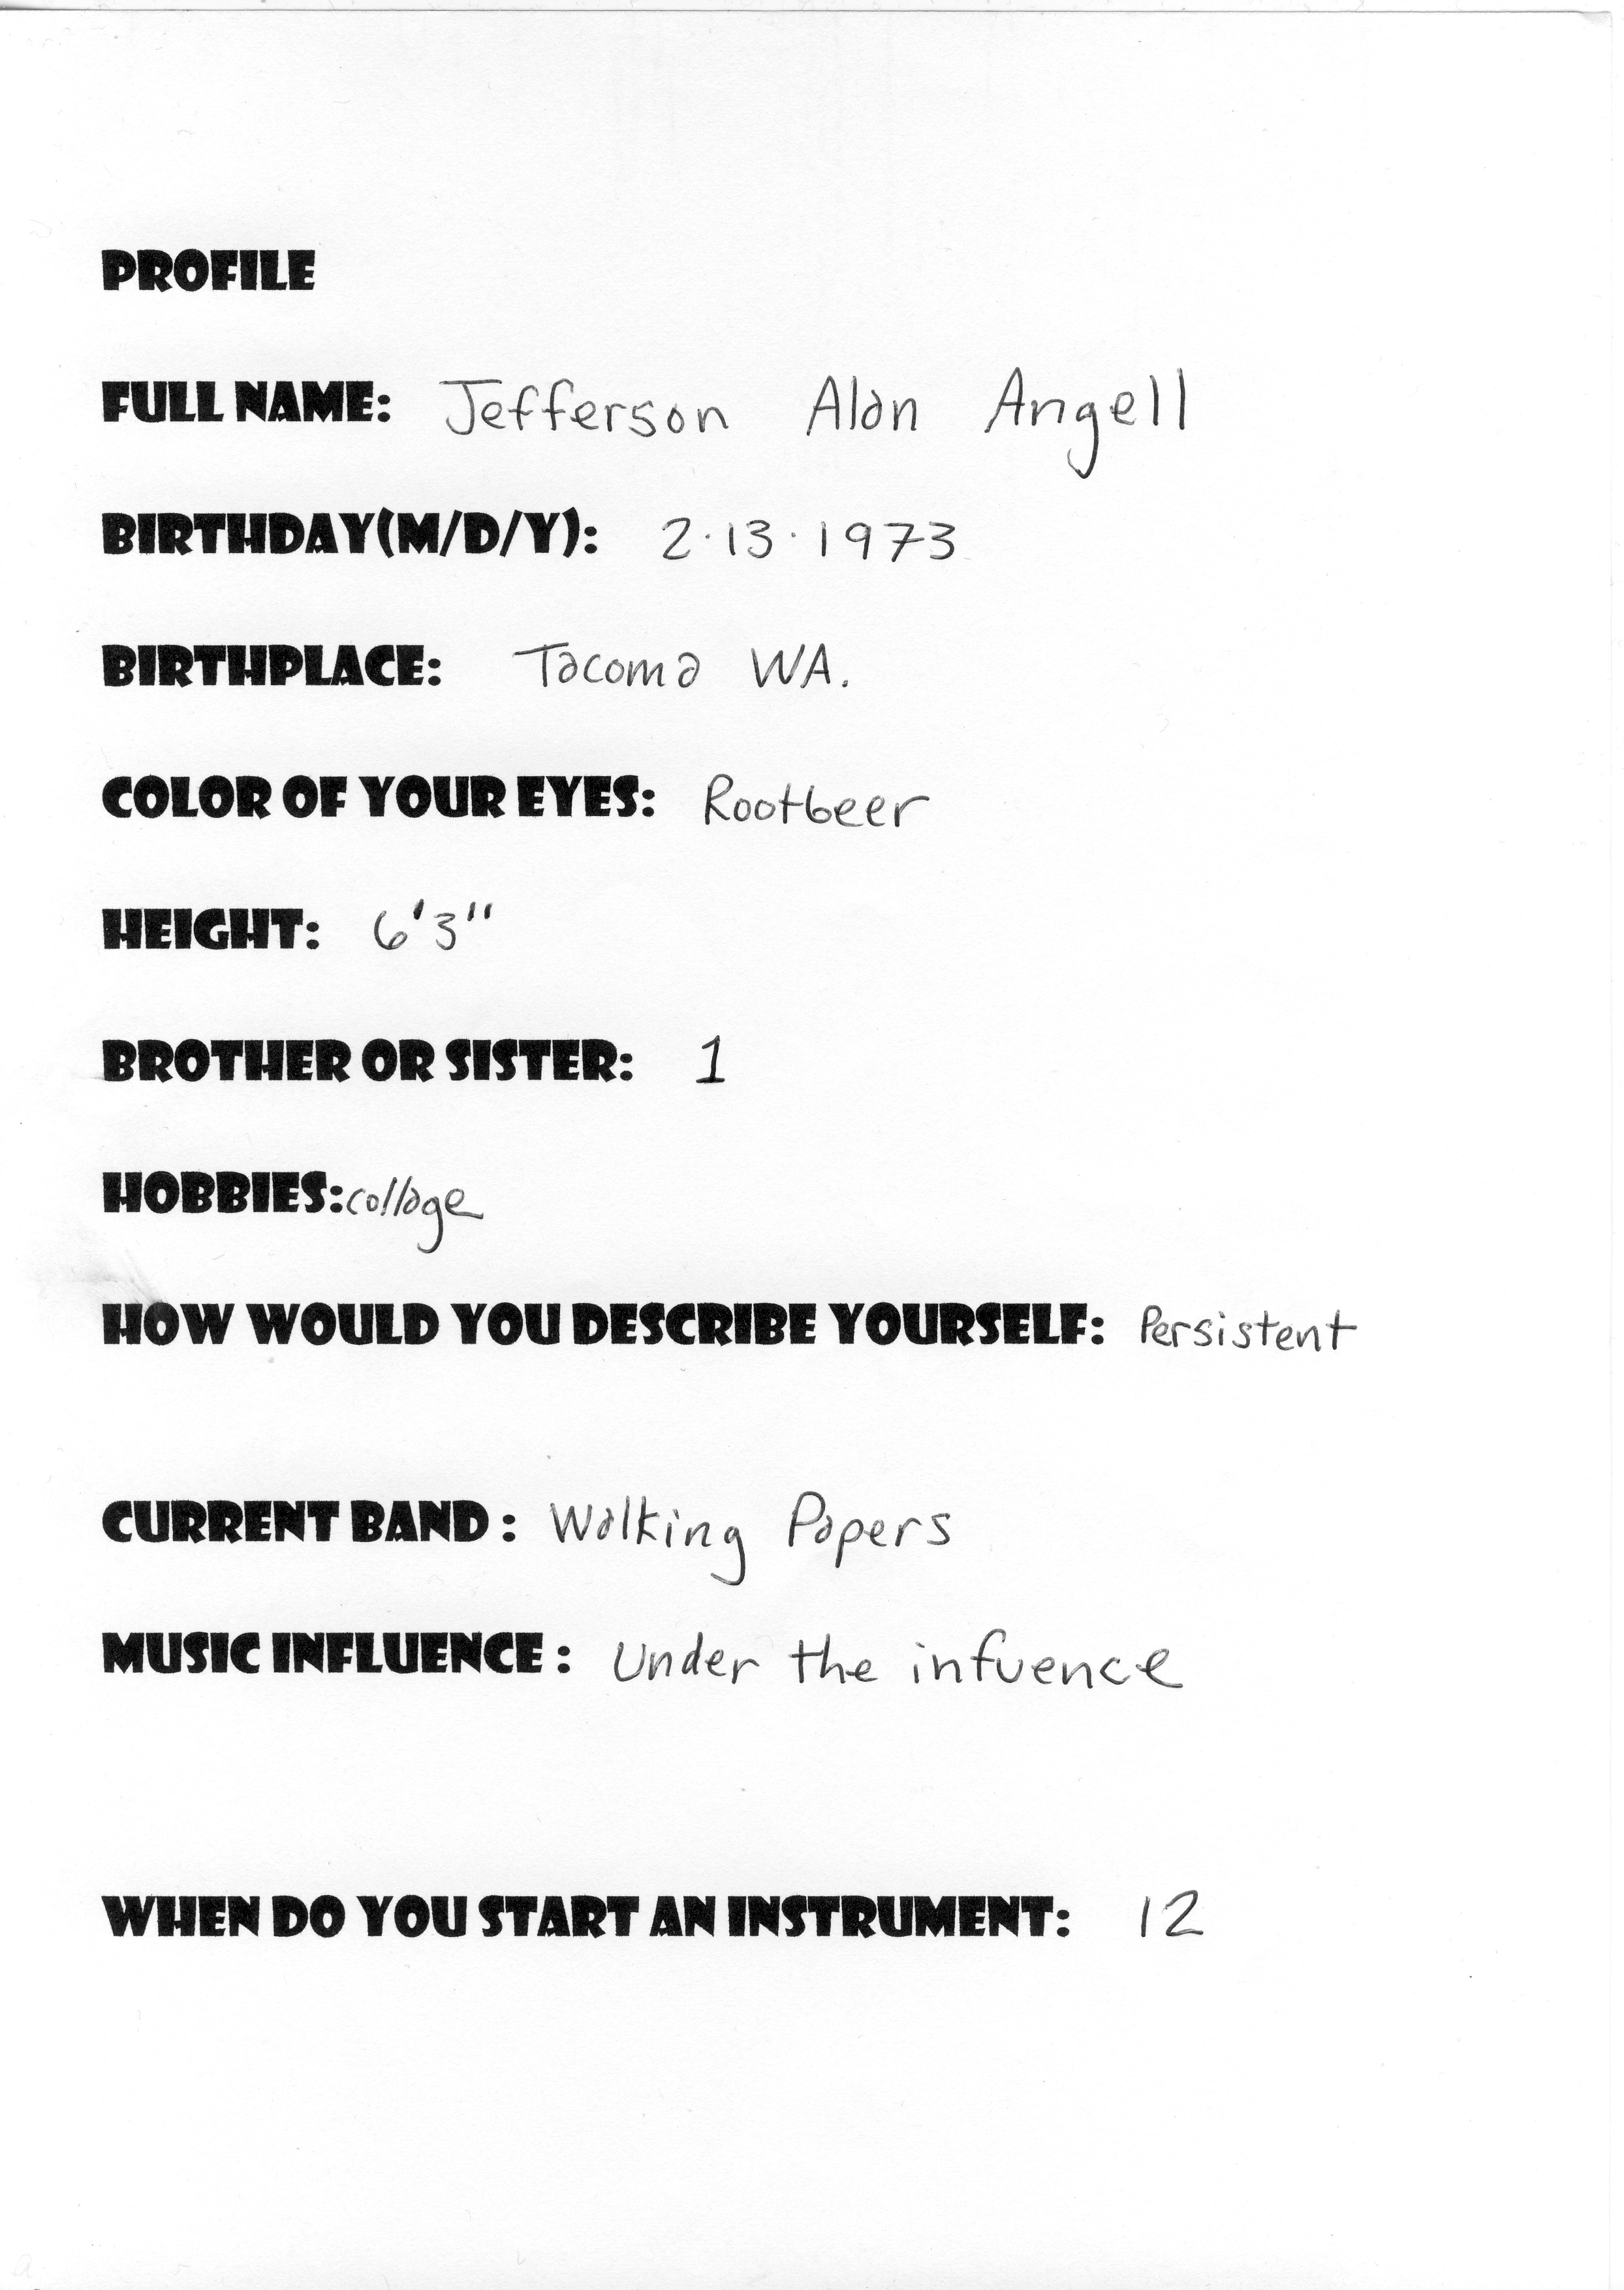 PROFILE
FULL NAME: Jefferson Alan Angell
BIRTHDAY(M/D/Y): 2·13·1973
BIRTHPLACE: Tacoma WA.
COLOR OF YOUR EYES: Rootbeer
HEIGHT: 6'3"
BROTHER OR SISTER: 1
HOBBIES: collage
HOW WOULD YOU DESCRIBE YOURSELF: Persistent
CURRENT BAND : Walking Papers
MUSIC INFLUENCE : Under the infuence
WHEN DO YOU START AN INSTRUMENT: 12